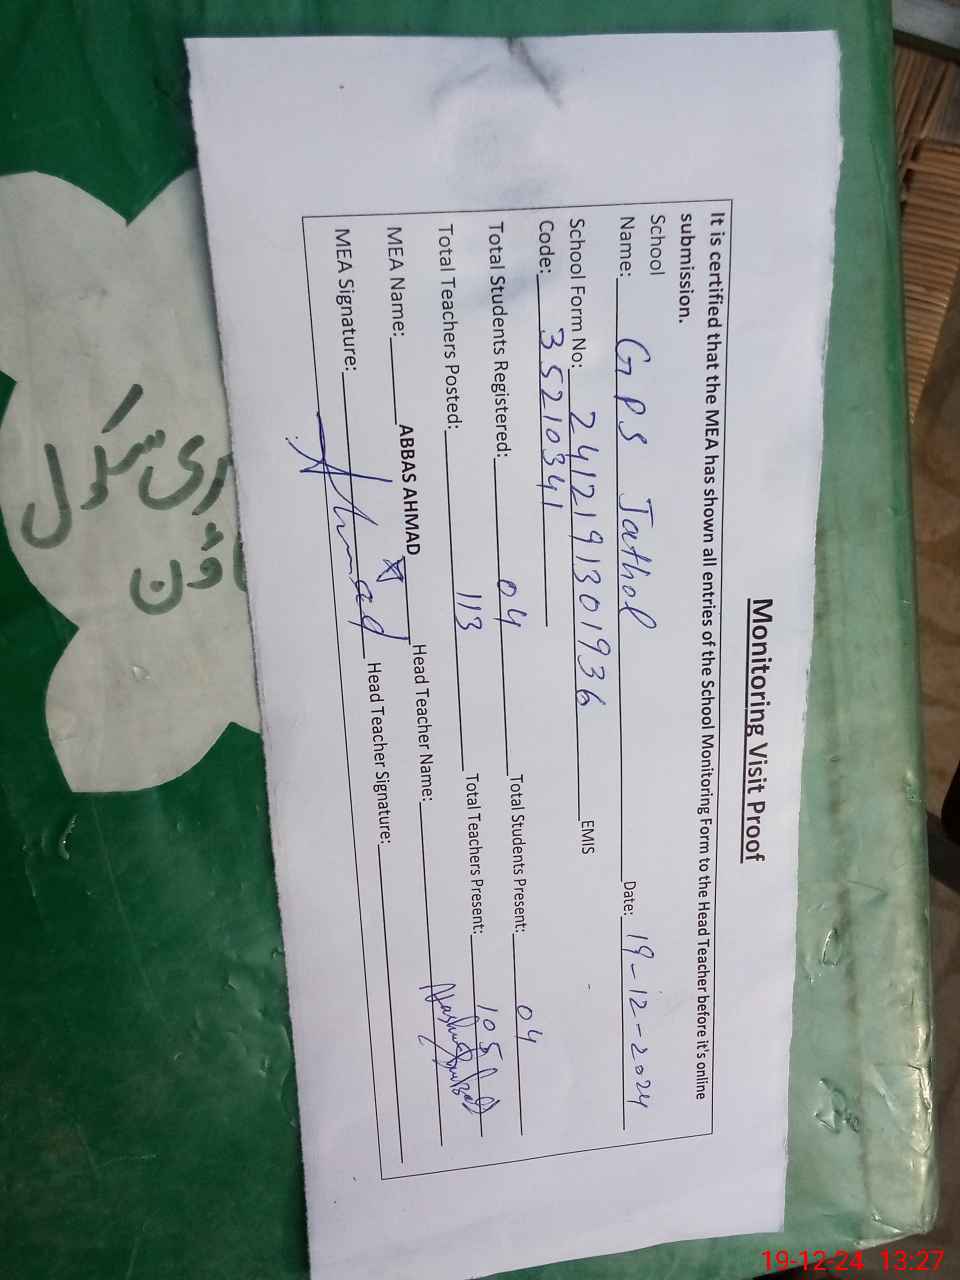 Monitoring Visit Proof
It is certified that the MEA has shown all entries of the School Monitoring Form to the Head Teacher before it's online
submission.
School
Name: GPS Jathol Date: 19-12-2024
School Form No: 2412191301936 EMIS
Code: 35210341
Total Students Registered: 04 Total Students Present: 04
Total Teachers Posted: 113 Total Teachers Present: 105
MEA Name: ABBAS AHMAD Head Teacher Name:
MEA Signature: Ahmad Head Teacher Signature:
ری سکول
ؤن
19-12-24 13:27